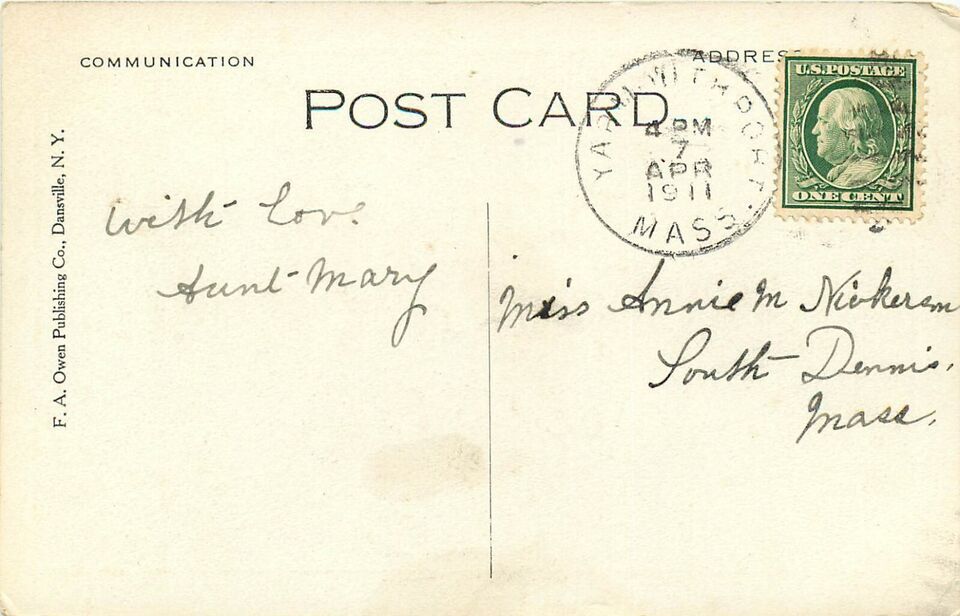 COMMUNICATION
ADDRESS
POST CARD
U.S. POSTAGE
ONE CENT
YARMOUTHPORT
4 PM
7
APR
1911
MASS.
F. A. Owen Publishing Co., Dansville, N. Y.
With Love
Aunt Mary
Miss Annie M Nickerson
South Dennis,
Mass.